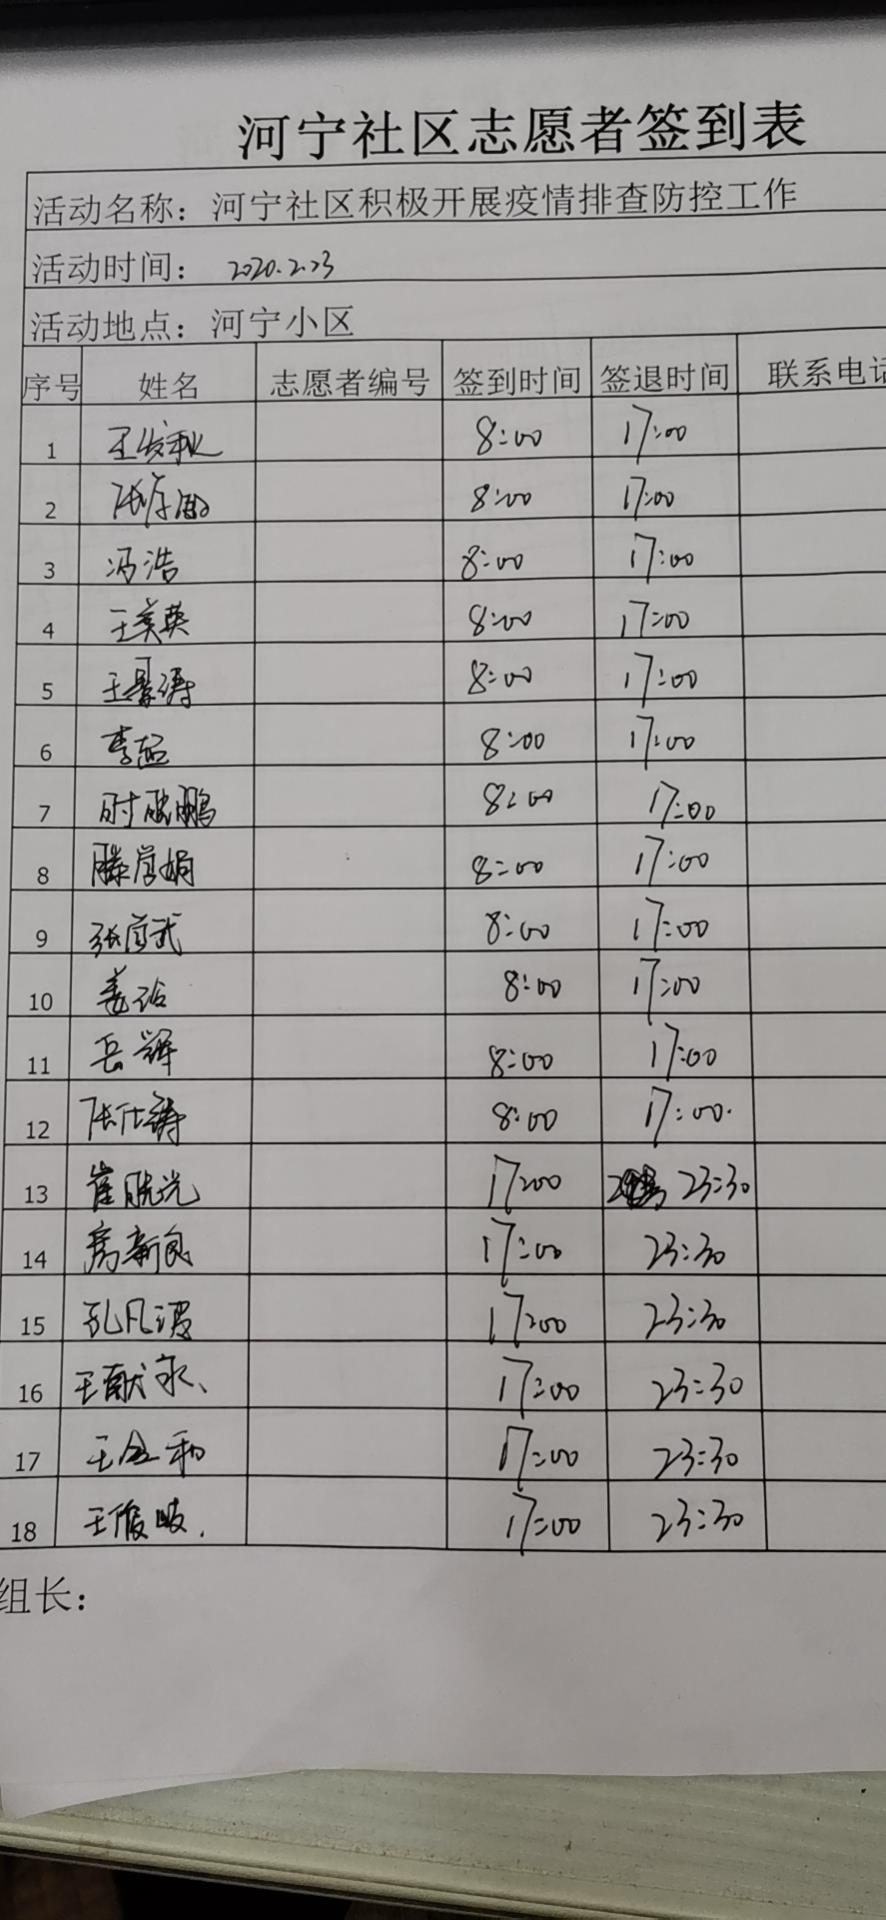 河宁社区志愿者签到表
活动名称：河宁社区积极开展疫情排查防控工作
活动时间： 2020.2.23
活动地点：河宁小区
序号 姓名 志愿者编号 签到时间 签退时间 联系电话
1 8:00 17:00
2 8:00 17:00
3 冯浩 8:00 17:00
4 王美英 8:00 17:00
5 王景涛 8:00 17:00
6 8:00 17:00
7 8:00 17:00
8 8:00 17:00
9 8:00 17:00
10 8:00 17:00
11 岳辉 8:00 17:00
12 张仕涛 8:00 17:00.
13 崔晓光 17:00 23:30
14 房新良 17:00 23:30
15 孔凡波 17:00 23:30
16 王献永、 17:00 23:30
17 王金和 17:00 23:30
18 17:00 23:30
组长：